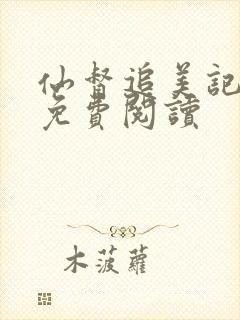 仙督追美記
免費閱讀
木菠蘿